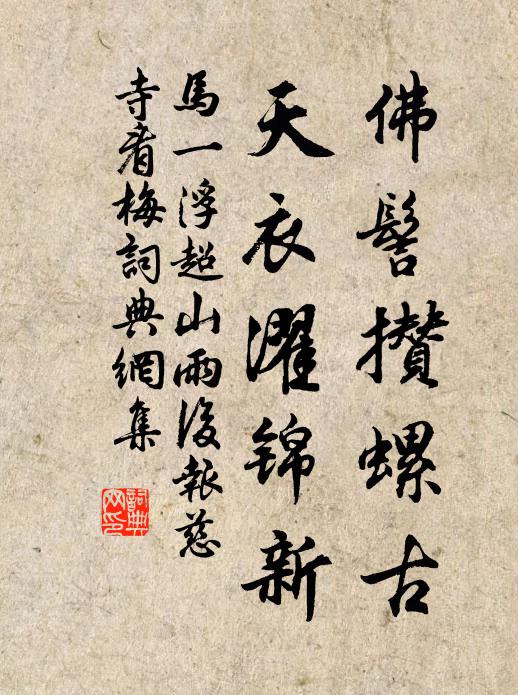 佛髻攒螺古
天衣濯锦新
馬一浮超山雨後報慈
寺看梅詞典網集
詞典网印